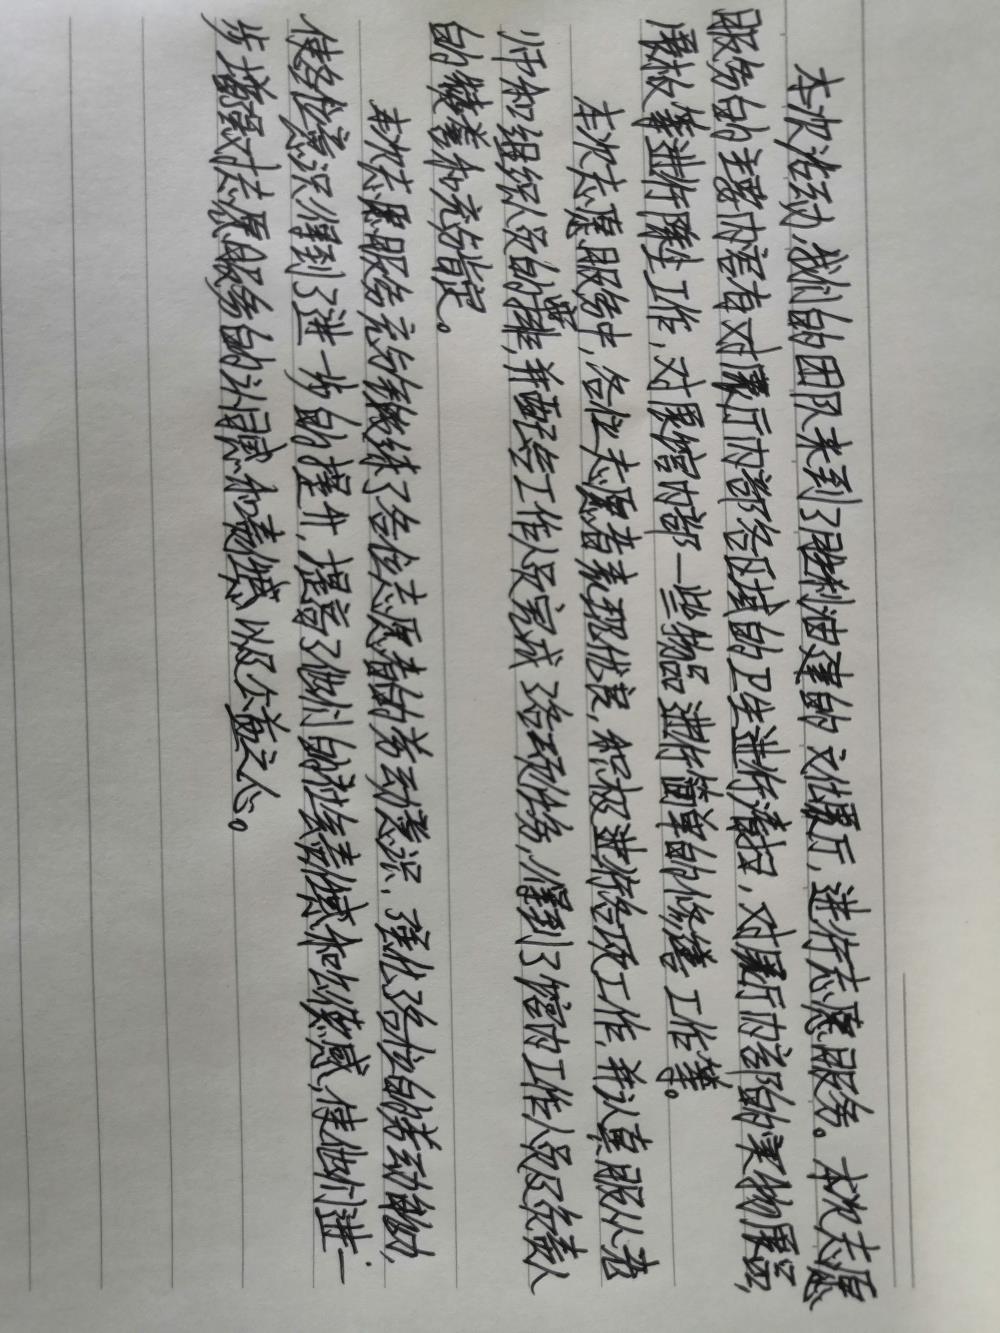 本次活动,我们的团队来到了胜利油建的文化展厅,进行志愿服务。本次志愿
服务的主要内容有对展厅内部各区域的卫生进行清扫,对展厅内部的实物展品,
展板等进行除尘工作,对展馆内部一些物品进行简单的修缮工作等。
本次志愿服务中,各位志愿者表现优良,积极进行各项工作,并认真服从老
师和组织人员的安排,并配合工作人员完成各项任务,得到了馆内工作人员及负责人
的赞誉和充分肯定。
本次志愿服务充分锻炼了各位志愿者的劳动意识,强化了各位的劳动能动,
使各位意识得到了进一步的提升,提高了他们的社会责任感和使命感,使他们进一
步增强对志愿服务的认同感和责任感以及公益之心。